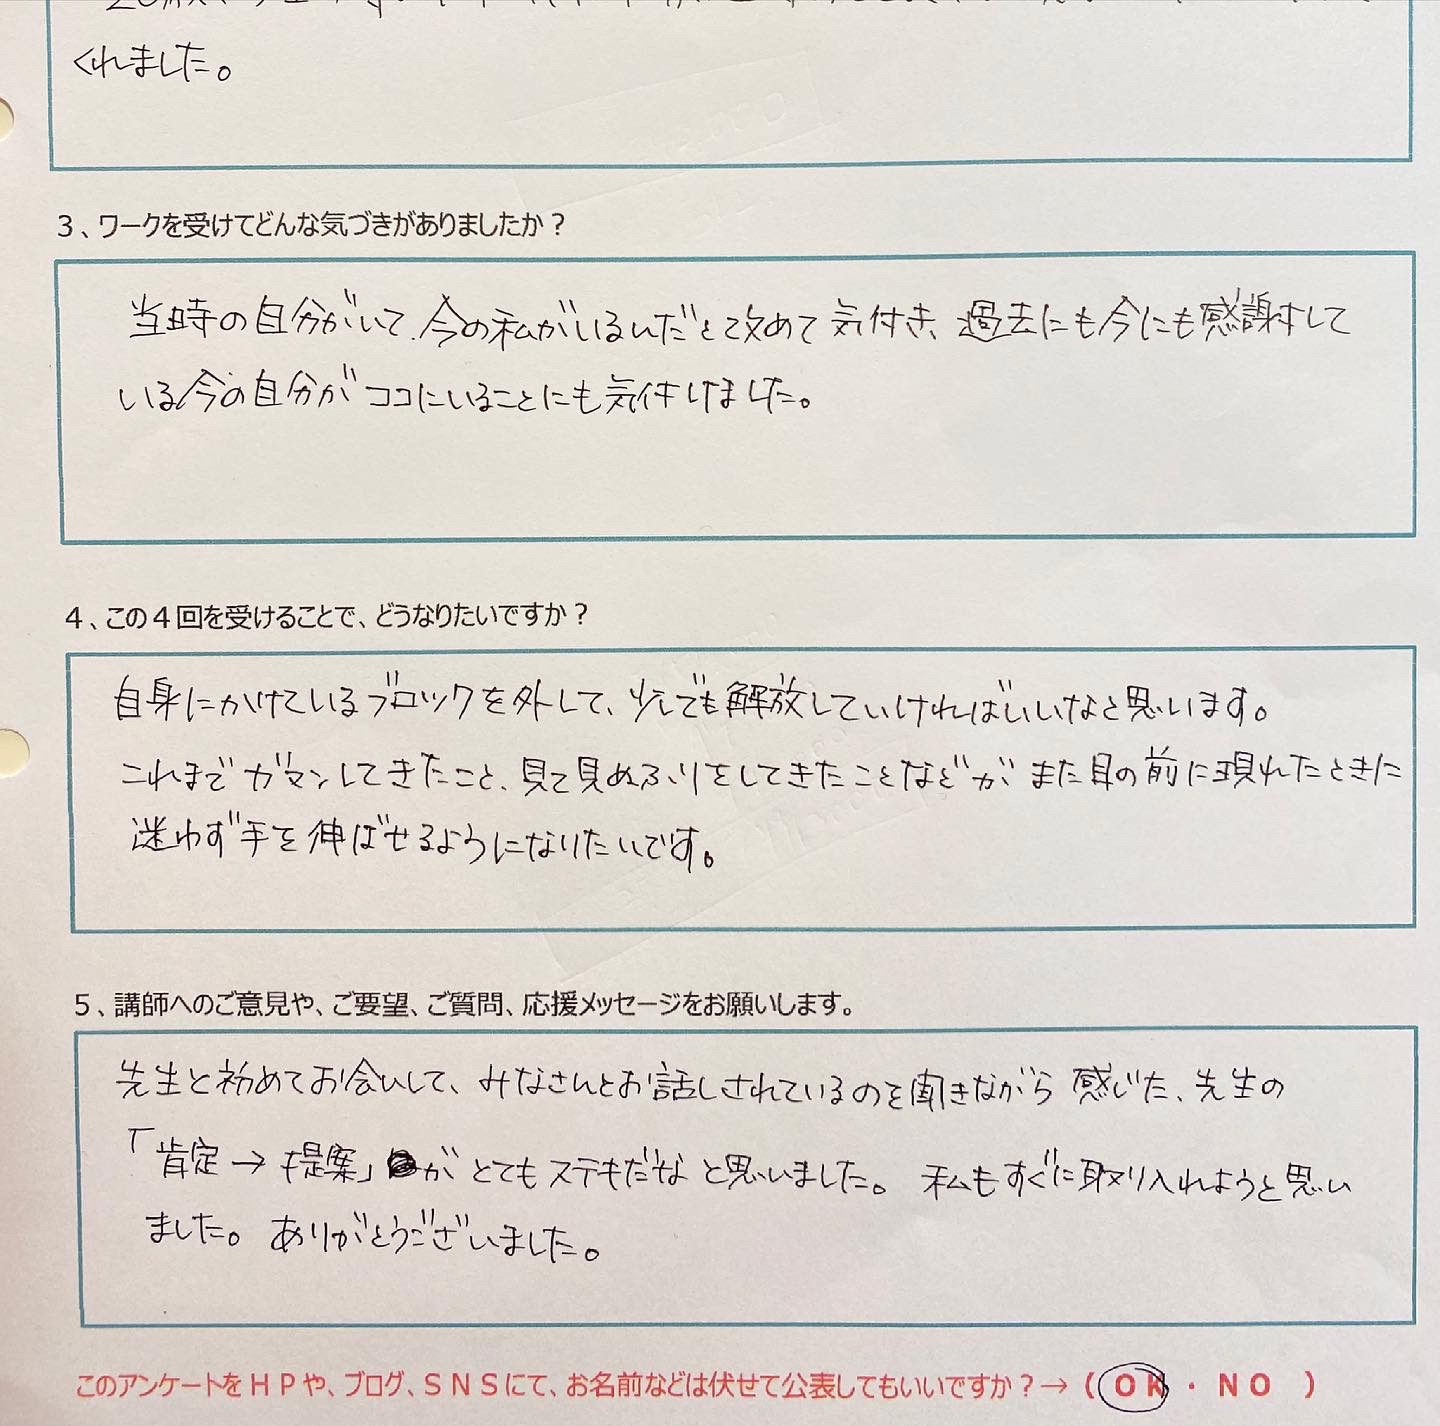 くれました。
３、ワークを受けてどんな気づきがありましたか？
当時の自分がいて、今の私がいるんだと改めて気付き、過去にも今にも感謝して
いる今の自分がココにいることにも気付けました。
４、この４回を受けることで、どうなりたいですか？
自身にかけているブロックを外して、少しでも解放していければいいなと思います。
これまでガマンしてきたこと、見て見ぬふりをしてきたことなどがまた目の前に現れたときに
迷わず手を伸ばせるようになりたいです。
５、講師へのご意見や、ご要望、ご質問、応援メッセージをお願いします。
先生と初めてお会いして、みなさんとお話しされているのを聞きながら感じた、先生の
「肯定→提案」がとてもステキだなと思いました。私もすぐに取り入れようと思い
ました。ありがとうございました。
このアンケートをＨＰや、ブログ、ＳＮＳにて、お名前などは伏せて公表してもいいですか？→（ＯＫ・ＮＯ　）